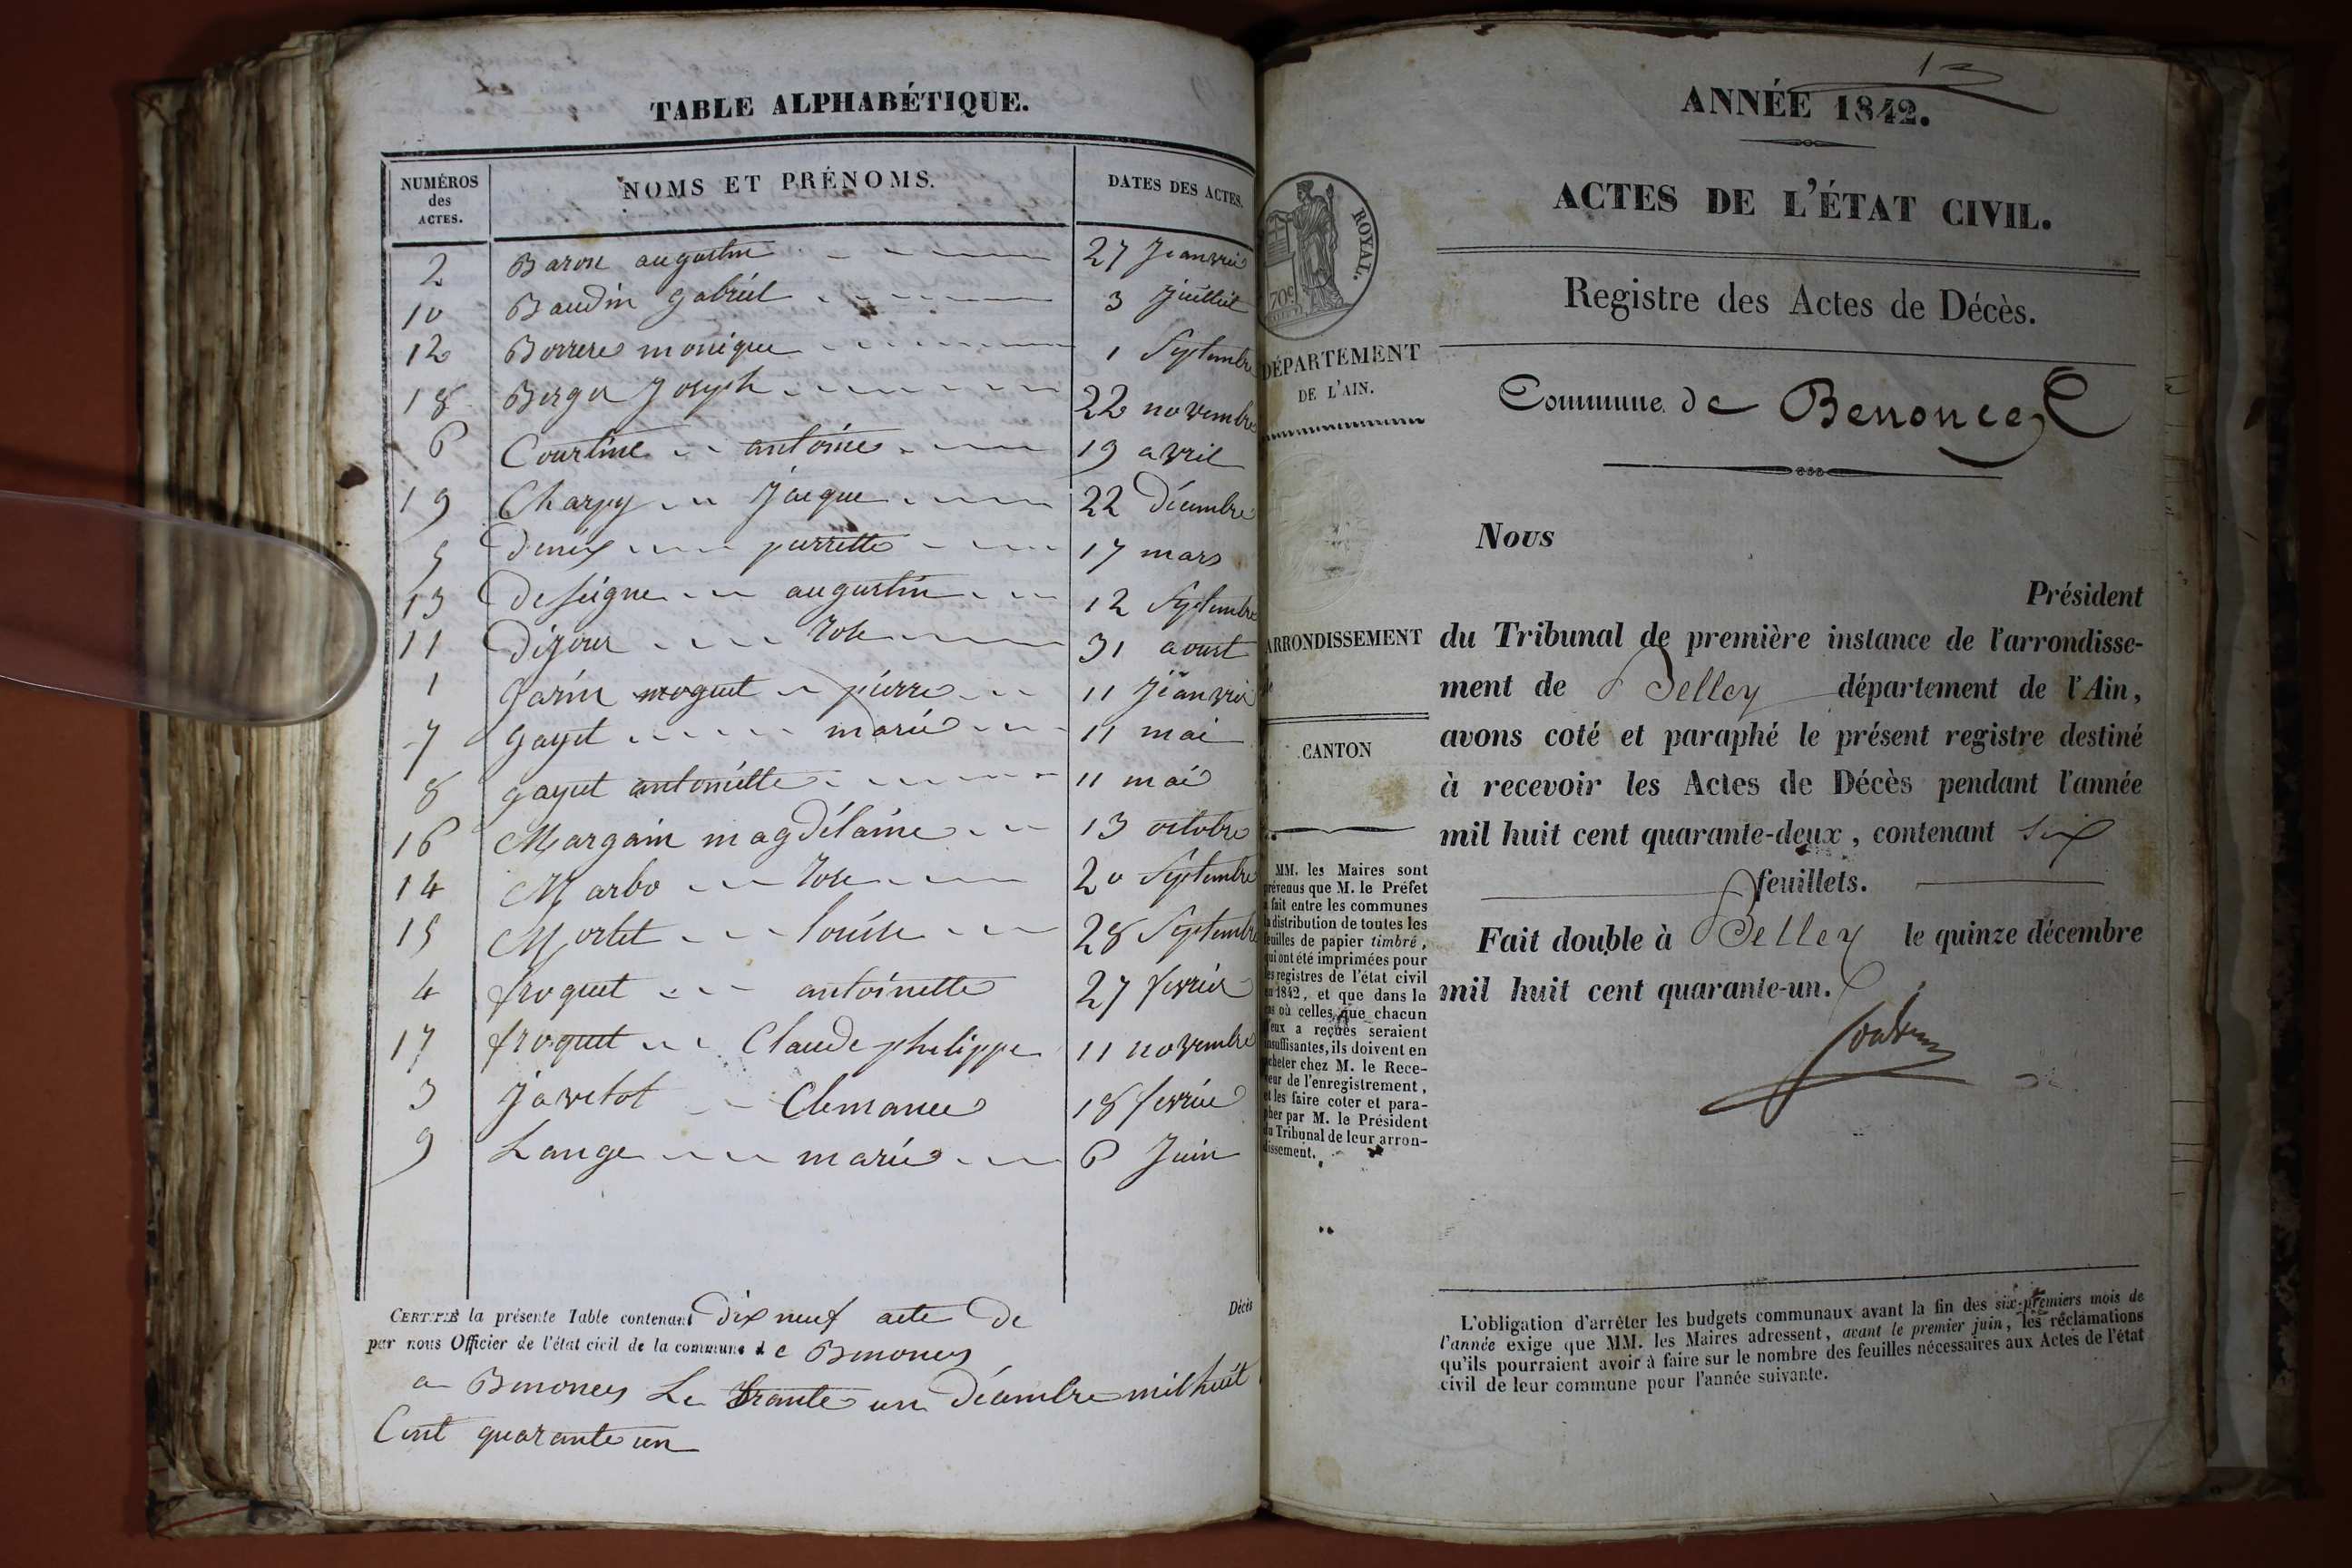 TABLE ALPHABÉTIQUE.
NUMÉROS des ACTES. NOMS ET PRÉNOMS. DATES DES ACTES.
2 Baron augustin 27 Jeanvier
10 Baudin gabriel 3 Juillet
12 monique 1 Septembre
18 Berger Joseph 22 novembre
6 Courtine antoine 19 avril
19 Charpy Jacque 22 Décembre
5 pierrette 17 mars
13 augustin 12 Septembre
11 Rose 31 aoust
1 garin moguet pierre 11 Jeanvier
7 gayet marie 11 mai
8 gayet antoinette 11 mai
16 Margain magdélaine 13 octobre
14 Marbo Rose 20 Septembre
15 Mortet louise 28 Septembre
4 froquet antoinette 27 fevrier
17 froquet Claude philippe 11 novembre
3 Javetot Clemance 18 fevrier
9 Lange marie 6 Juin
CERTIFIÉ la présente Table contenant Dix neuf acte De Décès
par nous Officier de l'état civil de la commune de Benonces
a Benonces Le trante un Décembre mil huit
Cent quarante un
13
ANNÉE 1842.
ACTES DE L'ÉTAT CIVIL.
Registre des Actes de Décès.
Commune de Benonces
ROYAL.
DÉPARTEMENT
DE L'AIN.
ARRONDISSEMENT
CANTON
MM. les Maires sont
prévenus que M. le Préfet
a fait entre les communes
la distribution de toutes les
feuilles de papier timbré,
qui ont été imprimées pour
les registres de l'état civil
en 1842, et que dans le
cas où celles que chacun
d'eux a reçues seraient
insuffisantes, ils doivent en
acheter chez M. le Rece-
veur de l'enregistrement,
et les faire coter et para-
pher par M. le Président
du Tribunal de leur arron-
dissement.
Nous
Président
du Tribunal de première instance de l'arrondisse-
ment de Belley département de l'Ain,
avons coté et paraphé le présent registre destiné
à recevoir les Actes de Décès pendant l'année
mil huit cent quarante-deux, contenant six
feuillets.
Fait double à Belley le quinze décembre
mil huit cent quarante-un.
L'obligation d'arrêter les budgets communaux avant la fin des six premiers mois de
l'année exige que MM. les Maires adressent, avant le premier juin, les réclamations
qu'ils pourraient avoir à faire sur le nombre des feuilles nécessaires aux Actes de l'état
civil de leur commune pour l'année suivante.